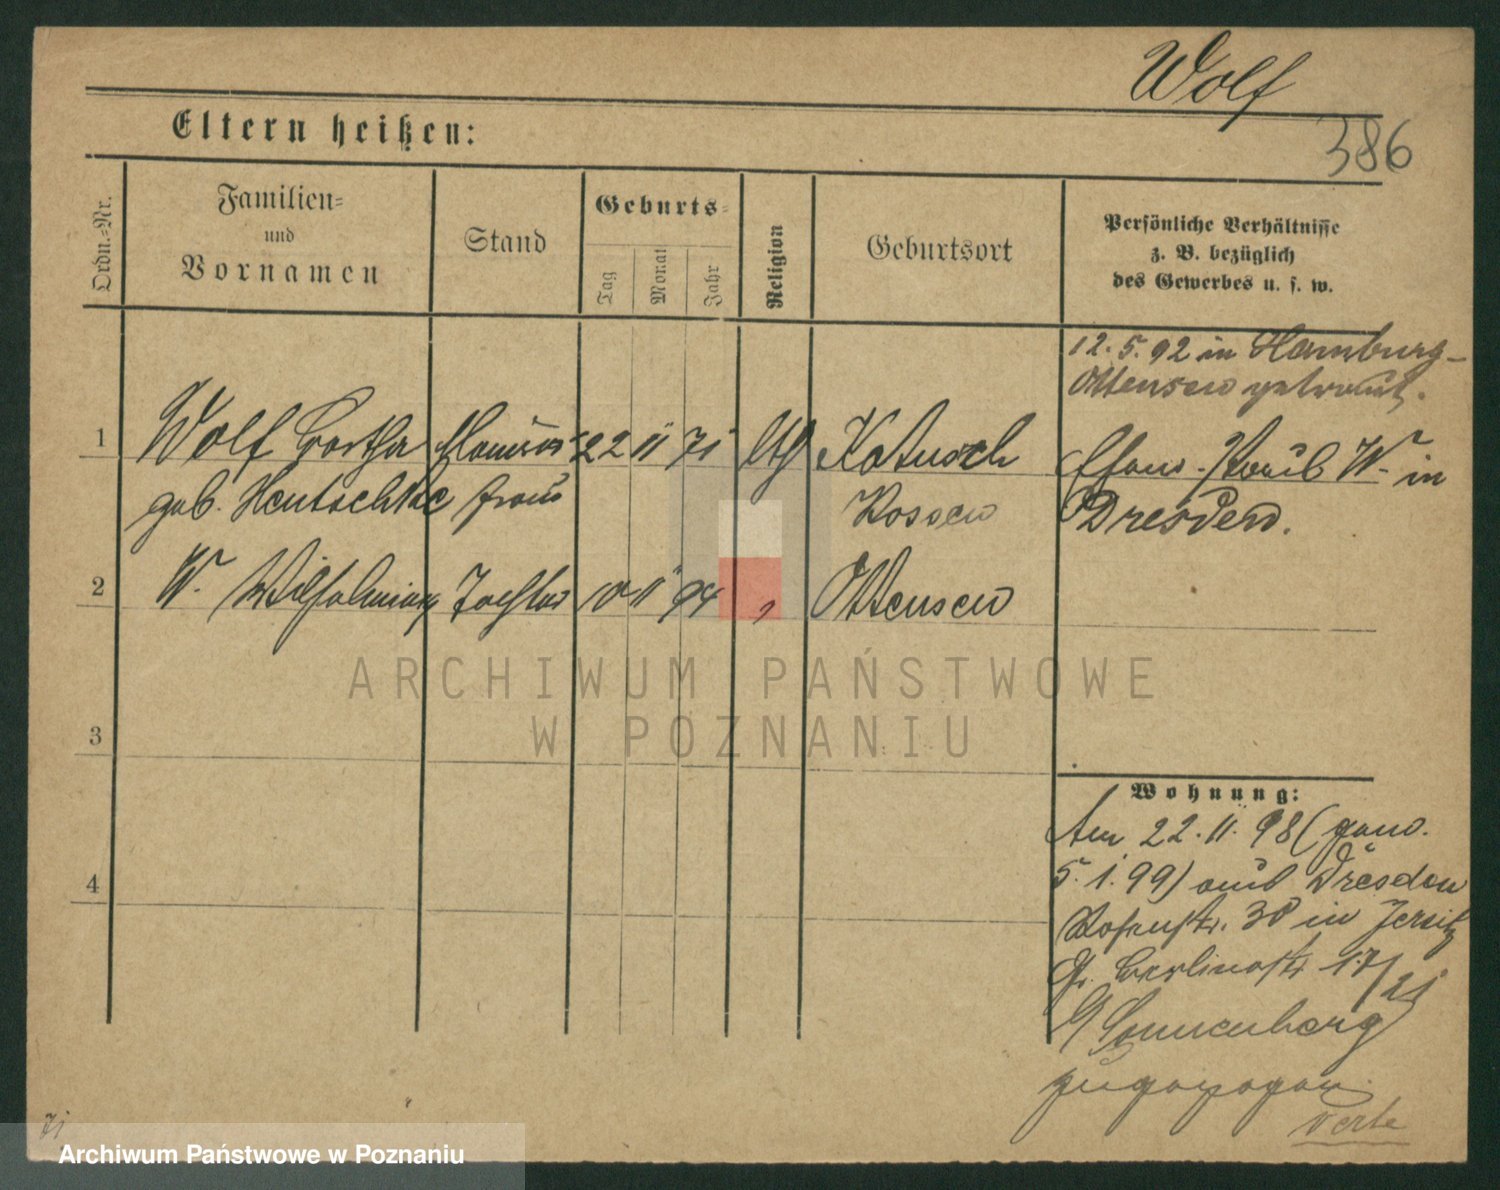 Wolf
Eltern heißen:
386
Ordn.-Nr.
Familien-
und
Vornamen
Stand
Geburts-
Tag
Monat
Jahr
Religion
Geburtsort
Persönliche Verhältnisse
z. B. bezüglich
des Gewerbes u. s. w.
12. 5. 92 in Hamburg-
Ottensen getraut.
1 Wolf Bertha Maurer- 22 11 71 Katusch
geb. Hentschke frau Kossen
Ehem. Paul W. in
Dresden.
2 W. Wilhelmine Tochter 10 11 94 " Ottensen
3
4
ARCHIWUM PAŃSTWOWE
W POZNANIU
Wohnung:
Am 22. 11. 98 (gem.
5. 1. 99) aus Dresden
Rosenstr. 30 in Jersitz
Gr. Berlinerstr 17/21
b/ Sonnenberg
zugezogen.
verte
71
Archiwum Państwowe w Poznaniu